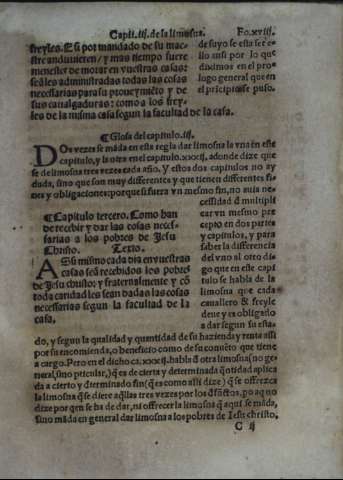 Capit. iij. de la limosna. Fo. xviij.
freyles. E si por mandado de su mae-
stre anduuieren / y mas tiempo fuere
menester de morar en vuestras casas:
seã les administradas todas las cosas
necessarias para su proueymiẽto y de
sus caualgaduras: como a los frey-
les de la misma casa segun la facultad de la casa.
de suyo se esta ser e
llo assi por lo que
diximos en el pro-
logo general que en
el prícipio se puso.
¶ Glosa del capitulo. iij.
DOs vezes se mãda en esta regla dar limosna la vna en este
capitulo, y la otra en el capitulo. xxxij, adonde dize que
se de limosna tres vezes cada año. Y estos dos capitulos no ay
duda, sino que son muy differentes y que tienen differentes fi-
nes y obligaciones: porque si fuera vn mesmo fin, no auia ne-
¶ Capitulo tercero. Como han
de recebir y dar las cosas neces-
sarias a los pobres de Jesu
Christo. Texto.
ASsi mismo cada dia en vuestras
casas seã recebidos los pobres
de Jesu christo: y fraternalmente y cõ
toda caridad les sean dadas las cosas
necessarias segun la facultad de la
casa.
cessidad đ multipli
car vn mesmo pre
cepto en dos partes
y capitulos, y para
saber la differencia
del vno al otro di-
go que en este capi
tulo se habla de la
limosna que cada
cauallero & freyle
deue y es obligado
a dar segun su esta-
do, y segun la qualidad y quantidad de su hazienda y renta assi
por su encomienda, o beneficio como de su conuẽto que tiene
a cargo. Pero en el dicho ca. xxxij. habla đ otra limosna (no ge-
neral, sino pticular,) q̃ es de cierta y determinada q̃ntidad aplica
da a cierto y dterminado fin (q̃ es como alli dize) q̃ se offrezca
la limosna q̃ se diere aq̃llas tres vezes por los đfũctos, po aquo
dize por quen se ha de dar, ni offrecer la limosna q̃ aqui se mãda,
sino mãda en general dar limosna a los pobres de Iesu christo.
C ij